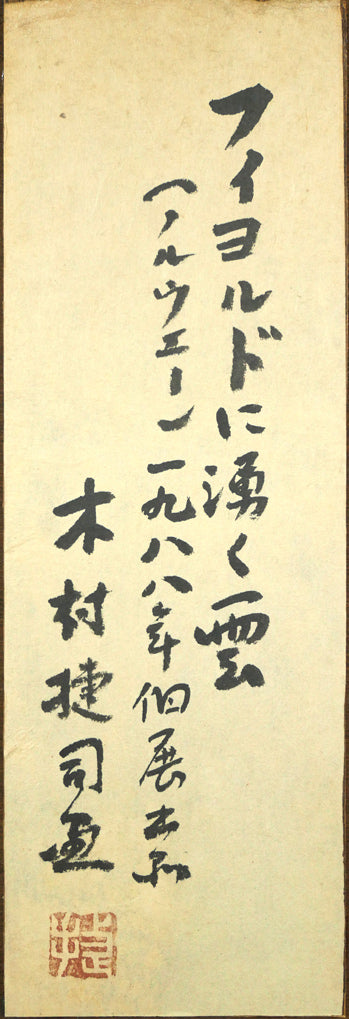 フイヨルドに湧く雲
(ノルウエー)一九八八年個展出品
木村捷司画